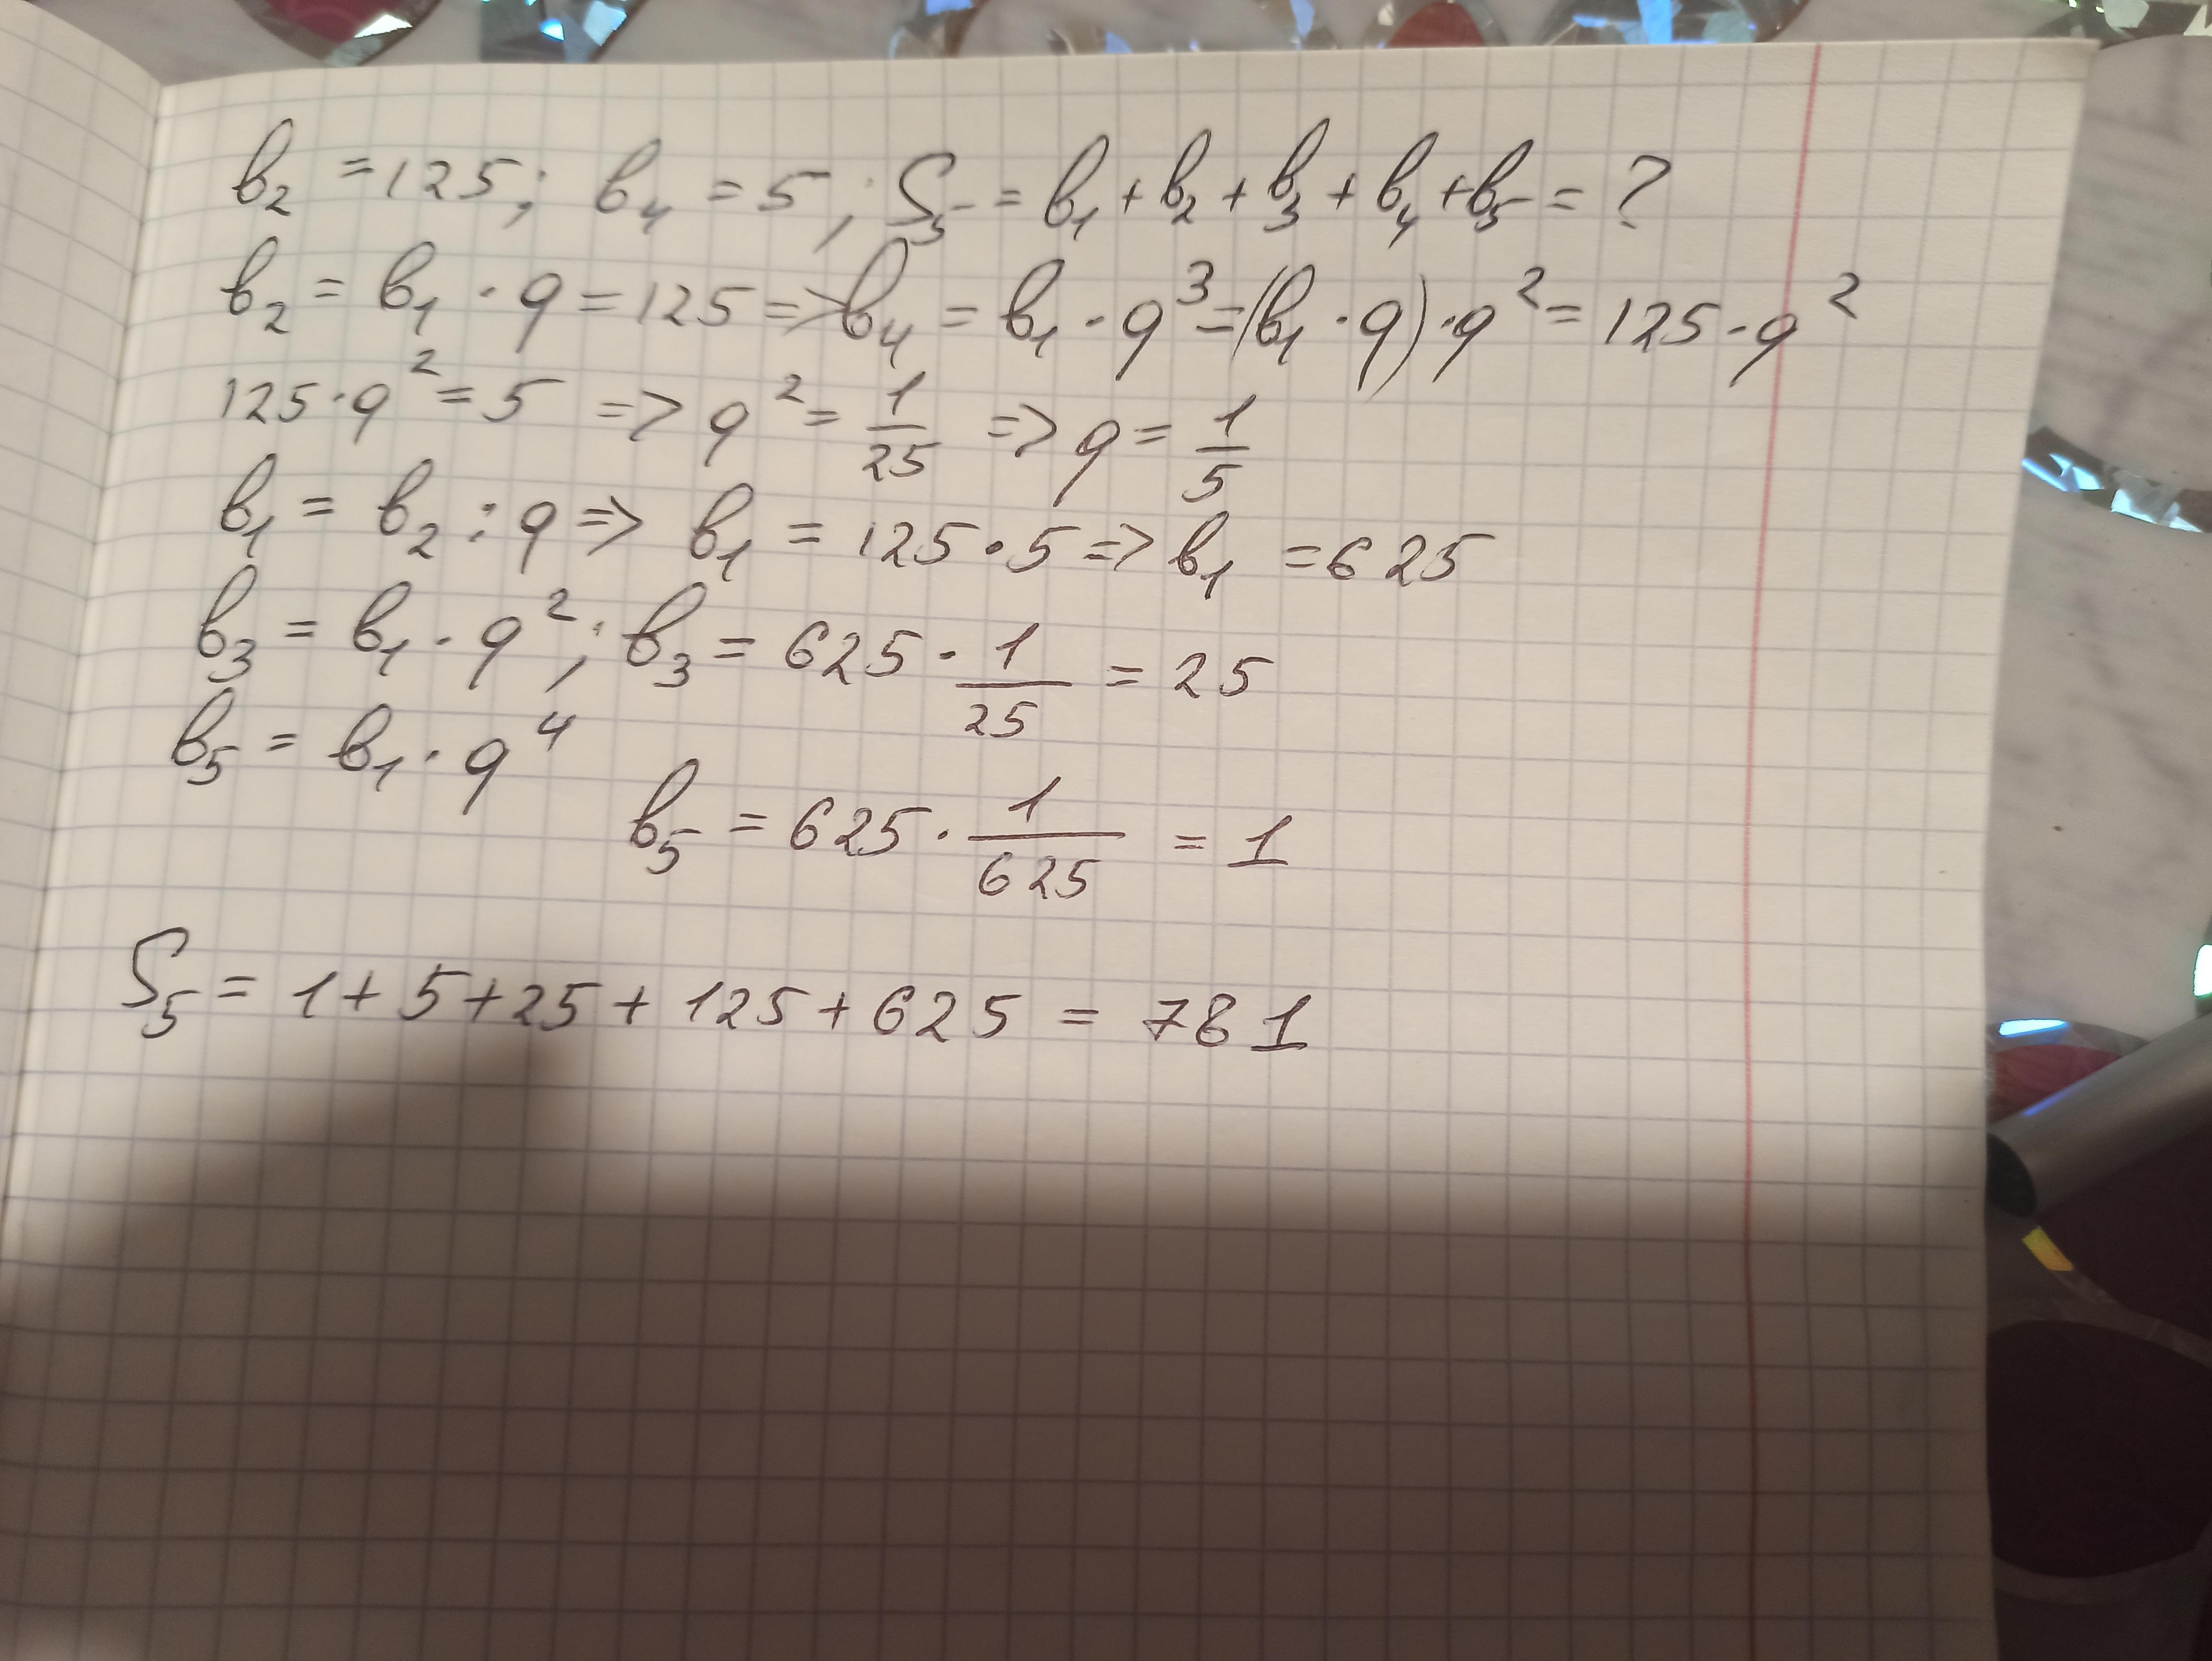 в₂ = 125; в₄ = 5; S₅ = в₁ + в₂ + в₃ + в₄ + в₅ = ?
в₂ = в₁ · q = 125 => в₄ = в₁ · q³ = (в₁ · q) · q² = 125 · q²
125 · q² = 5 => q² = 1/25 => q = 1/5
в₁ = в₂ : q => в₁ = 125 · 5 => в₁ = 625
в₃ = в₁ · q²; в₃ = 625 · 1/25 = 25
в₅ = в₁ · q⁴
в₅ = 625 · 1/625 = 1
S₅ = 1 + 5 + 25 + 125 + 625 = 781